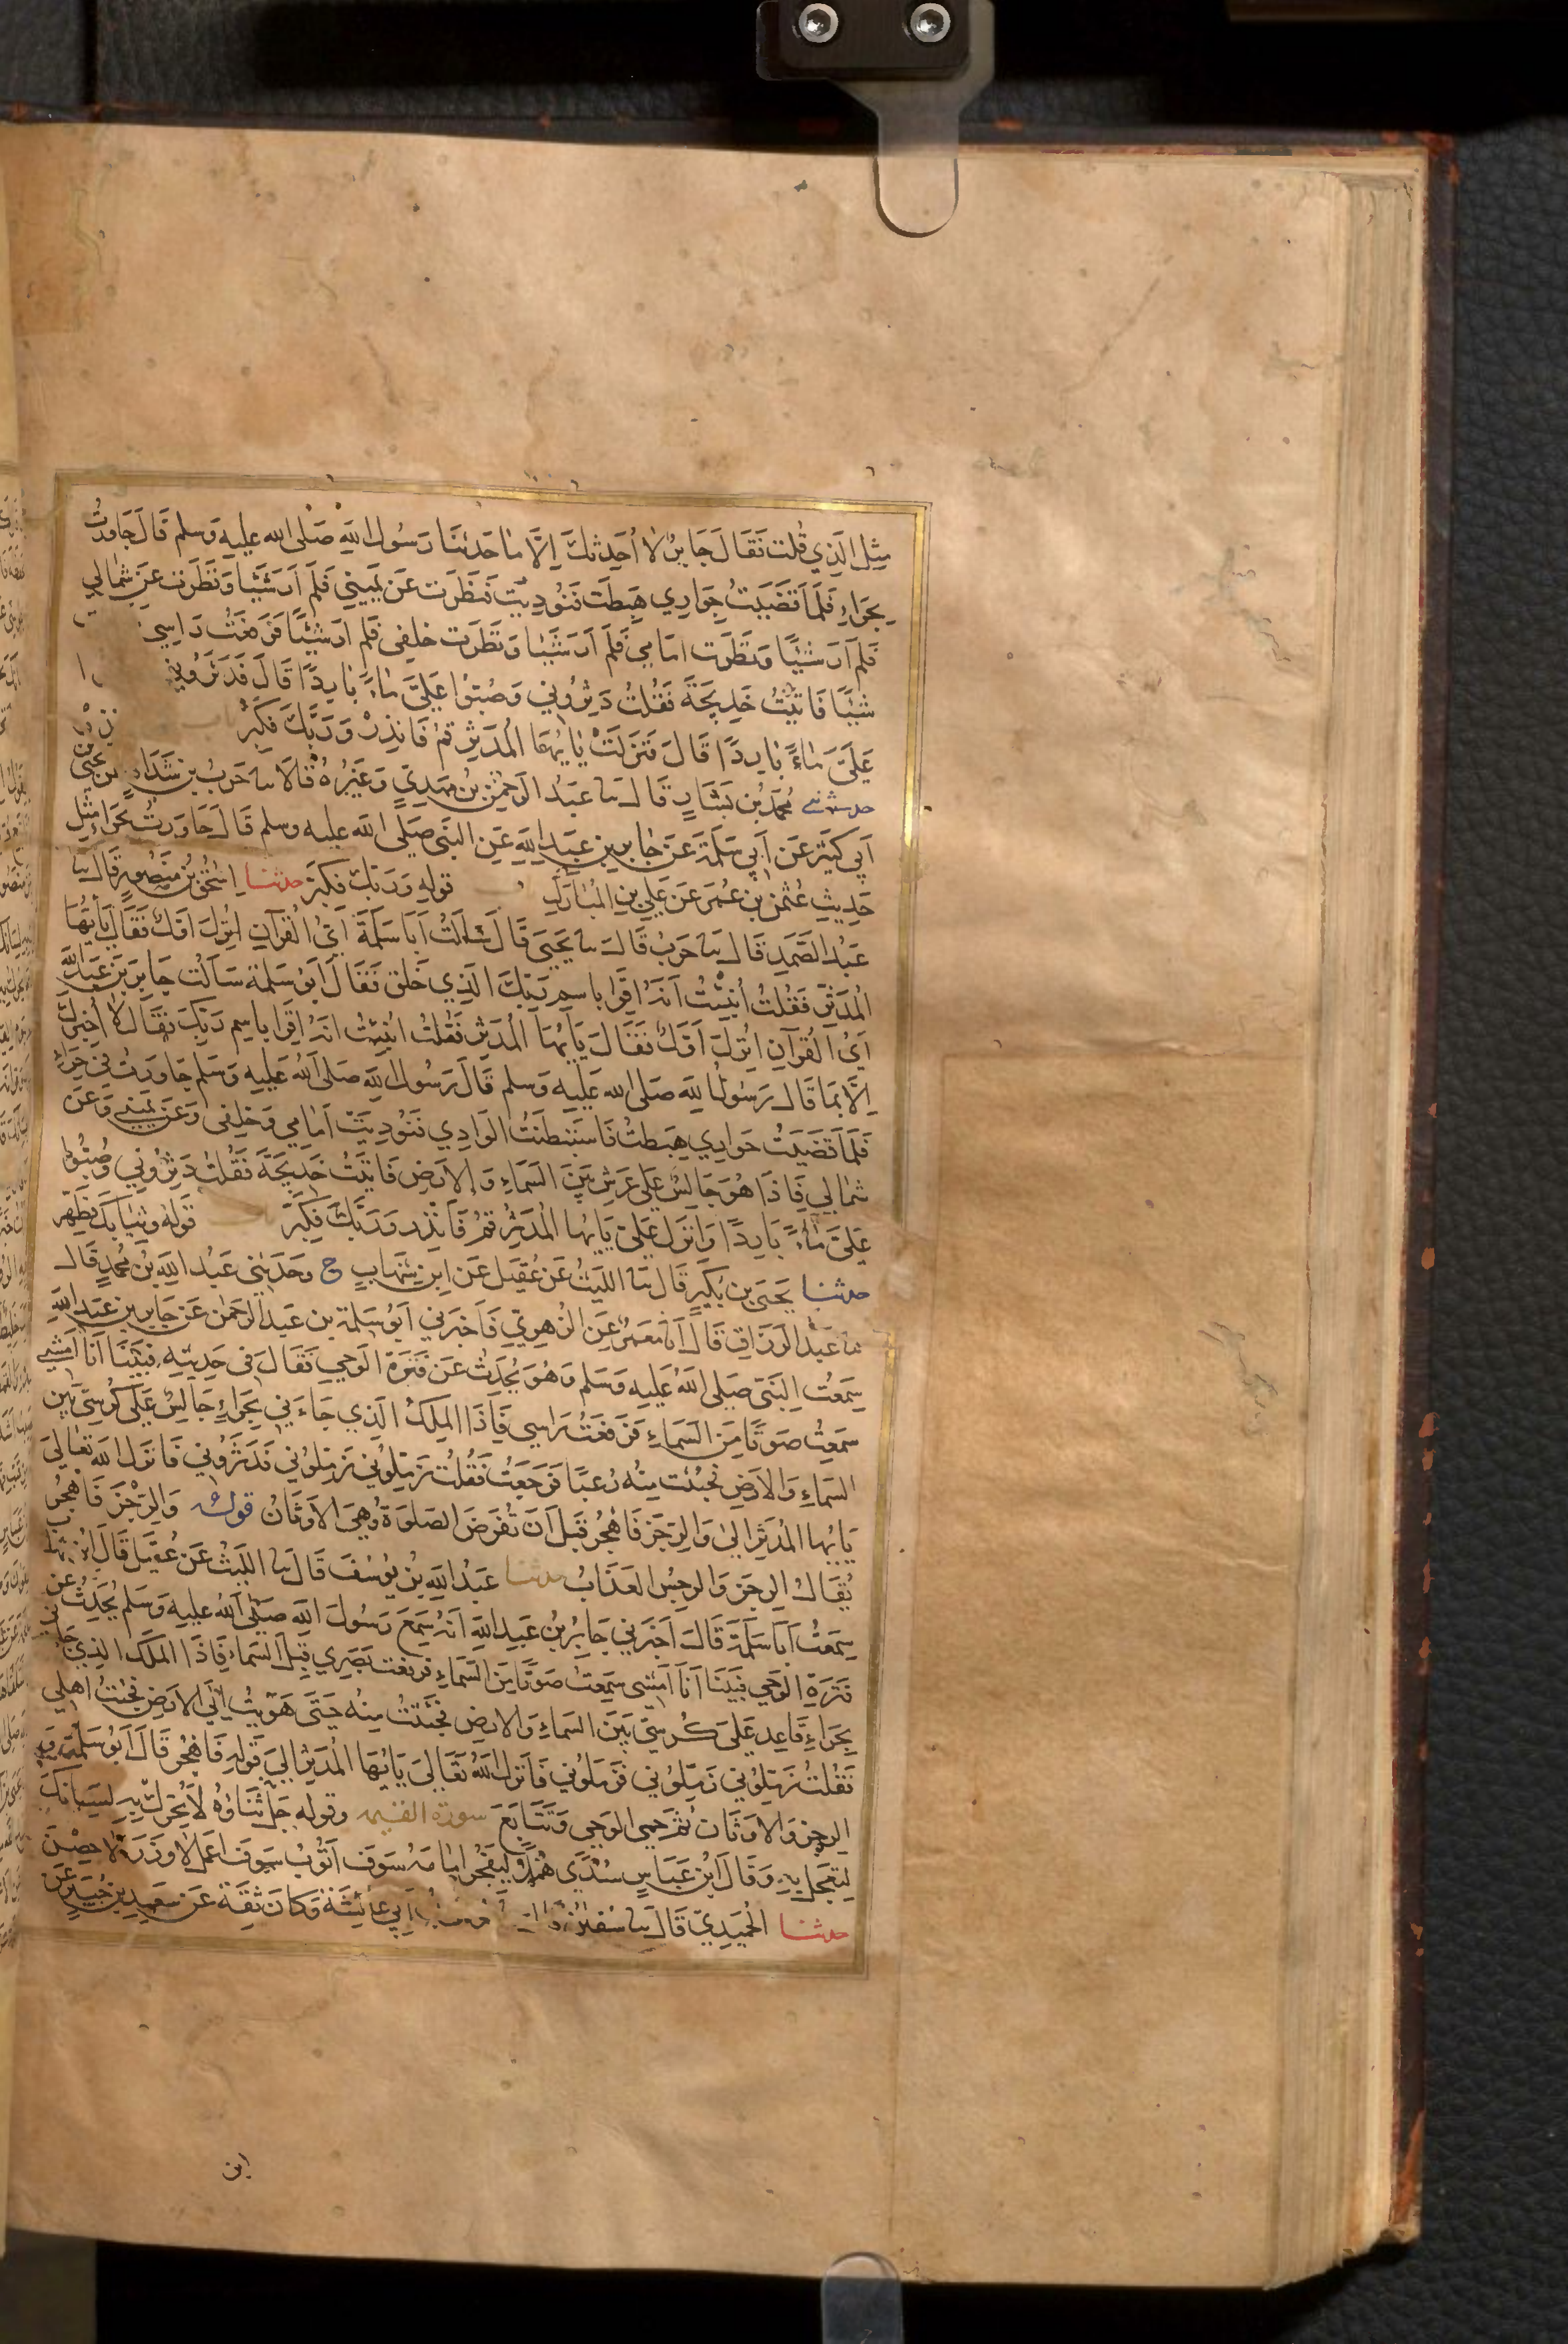 مِثْلَ الَّذِي قُلْتَ فَقَالَ جَابِرٌ لَا أُحَدِّثُكَ إِلَّا مَا حَدَّثَنَا رَسُولُ اللَّهِ صَلَّى اللَّهُ عَلَيْهِ وَسَلَّمَ قَالَ جَاوَرْتُ
بِحِرَاءٍ فَلَمَّا قَضَيْتُ جِوَارِي هَبَطْتُ فَنُودِيتُ فَنَظَرْتُ عَنْ يَمِينِي فَلَمْ أَرَ شَيْئًا وَنَظَرْتُ عَنْ شِمَالِي
فَلَمْ أَرَ شَيْئًا وَنَظَرْتُ أَمَامِي فَلَمْ أَرَ شَيْئًا وَنَظَرْتُ خَلْفِي فَلَمْ أَرَ شَيْئًا فَرَفَعْتُ رَاسِي
شَيْئًا فَأَتَيْتُ خَدِيجَةَ فَقُلْتُ دَثِّرُونِي وَصُبُّوا عَلَيَّ مَاءً بَارِدًا قَالَ فَدَثَّرُونِي
عَلَيَّ مَاءً بَارِدًا قَالَ فَنَزَلَتْ يَايُّهَا الْمُدَّثِّرُ قُمْ فَانْذِرْ وَرَبَّكَ فَكَبِّرْ باب
حدثني مُحَمَّدُ بْنُ بَشَّارٍ قَالَ ثنا عَبْدُ الرَّحْمٰنِ بْنُ مَهْدِيٍّ وَغَيْرُهُ قَالَا ثنا حَرْبُ بْنُ شَدَّادٍ عن يَحْيَى بن
أَبِي كَثِيرٍ عَنْ أَبِي سَلَمَةَ عَنْ جَابِرِ بْنِ عَبْدِ اللَّهِ عَنِ النَّبِيِّ صَلَّى اللَّهُ عليه وسلم قَالَ جَاوَرْتُ بِحِرَاءٍ مِثْلَ
حَدِيثِ عُثْمٰنَ بْنِ عُمَرَ عَنْ عَلِيِّ بْنِ الْمُبَارَكِ قوله وَرَبَّكَ فَكَبِّرْ حدثنا إِسْحٰقُ بْنُ مَنْصُورٍ قَالَ ثنا
عَبْدُ الصَّمَدِ قَالَ ثنا حَرْبٌ قَالَ ثنا يَحْيَى قَالَ سَأَلْتُ أَبَا سَلَمَةَ أَيُّ الْقُرْآنِ أُنْزِلَ أَوَّلُ فَقَالَ يَأَيُّهَا
الْمُدَّثِّرُ فَقُلْتُ أُنْبِئْتُ أَنَّهُ اقْرَا بِاسْمِ رَبِّكَ الَّذِي خَلَقَ فَقَالَ أَبُو سَلَمَةَ سَأَلْتُ جَابِرَ بْنَ عَبْدِ اللَّهِ
أَيُّ الْقُرْآنِ أُنْزِلَ أَوَّلُ فَقَالَ يَأَيُّهَا الْمُدَّثِّرُ فَقُلْتُ أُنْبِئْتُ أَنَّهُ اقْرَا بِاسْمِ رَبِّكَ فَقَالَ لَا أُخْبِرُكَ
إِلَّا بِمَا قَالَ رَسُولُ اللَّهِ صَلَّى اللَّهُ عَلَيْهِ وَسَلَّمَ قَالَ رَسُولُ اللَّهِ صَلَّى اللَّهُ عَلَيْهِ وَسَلَّمَ جَاوَرْتُ فِي حِرَاءٍ
فَلَمَّا قَضَيْتُ جِوَارِي هَبَطْتُ فَاسْتَبْطَنْتُ الْوَادِي فَنُودِيتُ أَمَامِي وَخَلْفِي وَعَنْ يَمِينِي وَعَنْ
شِمَالِي فَإِذَا هُوَ جَالِسٌ عَلَى عَرْشٍ بَيْنَ السَّمَاءِ وَالْأَرْضِ فَأَتَيْتُ خَدِيجَةَ فَقُلْتُ دَثِّرُونِي وَصُبُّوا
عَلَيَّ مَاءً بَارِدًا وَأُنْزِلَ عَلَيَّ يَأَيُّهَا الْمُدَّثِّرُ قُمْ فَأَنْذِرْ وَرَبَّكَ فَكَبِّرْ قوله وَثِيَابَكَ فَطَهِّرْ
حدثنا يَحْيَى بْنُ بُكَيْرٍ قَالَ ثنا اللَّيْثُ عَنْ عُقَيْلٍ عَنِ ابْنِ شِهَابٍ ح وَحَدَّثَنِي عَبْدُ اللَّهِ بْنُ مُحَمَّدٍ قَالَ
ثنا عَبْدُ الرَّزَّاقِ قَالَ أَنَا مَعْمَرٌ عَنِ الزُّهْرِيِّ فَأَخْبَرَنِي أَبُو سَلَمَةَ بْنُ عَبْدِ الرَّحْمٰنِ عَنْ جَابِرِ بْنِ عَبْدِ اللَّهِ
سَمِعْتُ النَّبِيَّ صَلَّى اللَّهُ عَلَيْهِ وَسَلَّمَ وَهُوَ يُحَدِّثُ عَنْ فَتْرَةِ الْوَحْيِ فَقَالَ فِي حَدِيثِهِ فَبَيْنَا أَنَا أَمْشِي
سَمِعْتُ صَوْتًا مِنَ السَّمَاءِ فَرَفَعْتُ رَاسِي فَإِذَا الْمَلَكُ الَّذِي جَاءَنِي بِحِرَاءٍ جَالِسٌ عَلَى كُرْسِيٍّ بَيْنَ
السَّمَاءِ وَالْأَرْضِ فَجُئِثْتُ مِنْهُ رُعْبًا فَرَجَعْتُ فَقُلْتُ زَمِّلُونِي زَمِّلُونِي فَدَثَّرُونِي فَأَنْزَلَ اللَّهُ تَعَالَى
يَأَيُّهَا الْمُدَّثِّرُ إِلَى وَالرِّجْزَ فَاهْجُرْ قَبْلَ أَنْ تُفْرَضَ الصَّلَوةُ وَهِيَ الْأَوْثَانُ قوله وَالرِّجْزَ فَاهْجُرْ
يُقَالُ الرِّجْزُ وَالرِّجْسُ الْعَذَابُ حدثنا عَبْدُ اللَّهِ بْنُ يُوسُفَ قَالَ ثنا اللَّيْثُ عَنْ عُقَيْلٍ قَالَ ابْنُ شِهَابٍ
سَمِعْتُ أَبَا سَلَمَةَ قَالَ أَخْبَرَنِي جَابِرُ بْنُ عَبْدِ اللَّهِ أَنَّهُ سَمِعَ رَسُولَ اللَّهِ صَلَّى اللَّهُ عَلَيْهِ وَسَلَّمَ يُحَدِّثُ عَنْ
فَتْرَةِ الْوَحْيِ فَبَيْنَا أَنَا أَمْشِي سَمِعْتُ صَوْتًا مِنَ السَّمَاءِ فَرَفَعْتُ بَصَرِي قِبَلَ السَّمَاءِ فَإِذَا الْمَلَكُ الَّذِي جَاءَنِي
بِحِرَاءٍ قَاعِدٌ عَلَى كُرْسِيٍّ بَيْنَ السَّمَاءِ وَالْأَرْضِ فَجُئِثْتُ مِنْهُ حَتَّى هَوَيْتُ إِلَى الْأَرْضِ فَجِئْتُ أَهْلِي
فَقُلْتُ زَمِّلُونِي زَمِّلُونِي فَزَمَّلُونِي فَأَنْزَلَ اللَّهُ تَعَالَى يَأَيُّهَا الْمُدَّثِّرُ إِلَى قَوْلِهِ فَاهْجُرْ قَالَ أَبُو سَلَمَةَ
الرِّجْزَ وَالْأَوْثَانَ ثُمَّ حَمِيَ الْوَحْيُ وَتَتَابَعَ سورة القيمه وقوله جَلَّ ثَنَاؤُهُ لَا تُحَرِّكْ بِهِ لِسَانَكَ
لِتَعْجَلَ بِهِ وَقَالَ ابْنُ عَبَّاسٍ سُدًى هَمَلًا لِيَفْجُرَ أَمَامَهُ سَوْفَ أَتُوبُ سَوْفَ أَعْمَلُ لَا وَزَرَ لَا حِصْنَ
حدثنا الْحُمَيْدِيُّ قَالَ ثنا سُفْيٰنُ قال ثنا موسى بن أَبِي عَائِشَةَ وَكَانَ ثِقَةً عَنْ سَعِيدِ بْنِ جُبَيْرٍ عَنِ
ابن